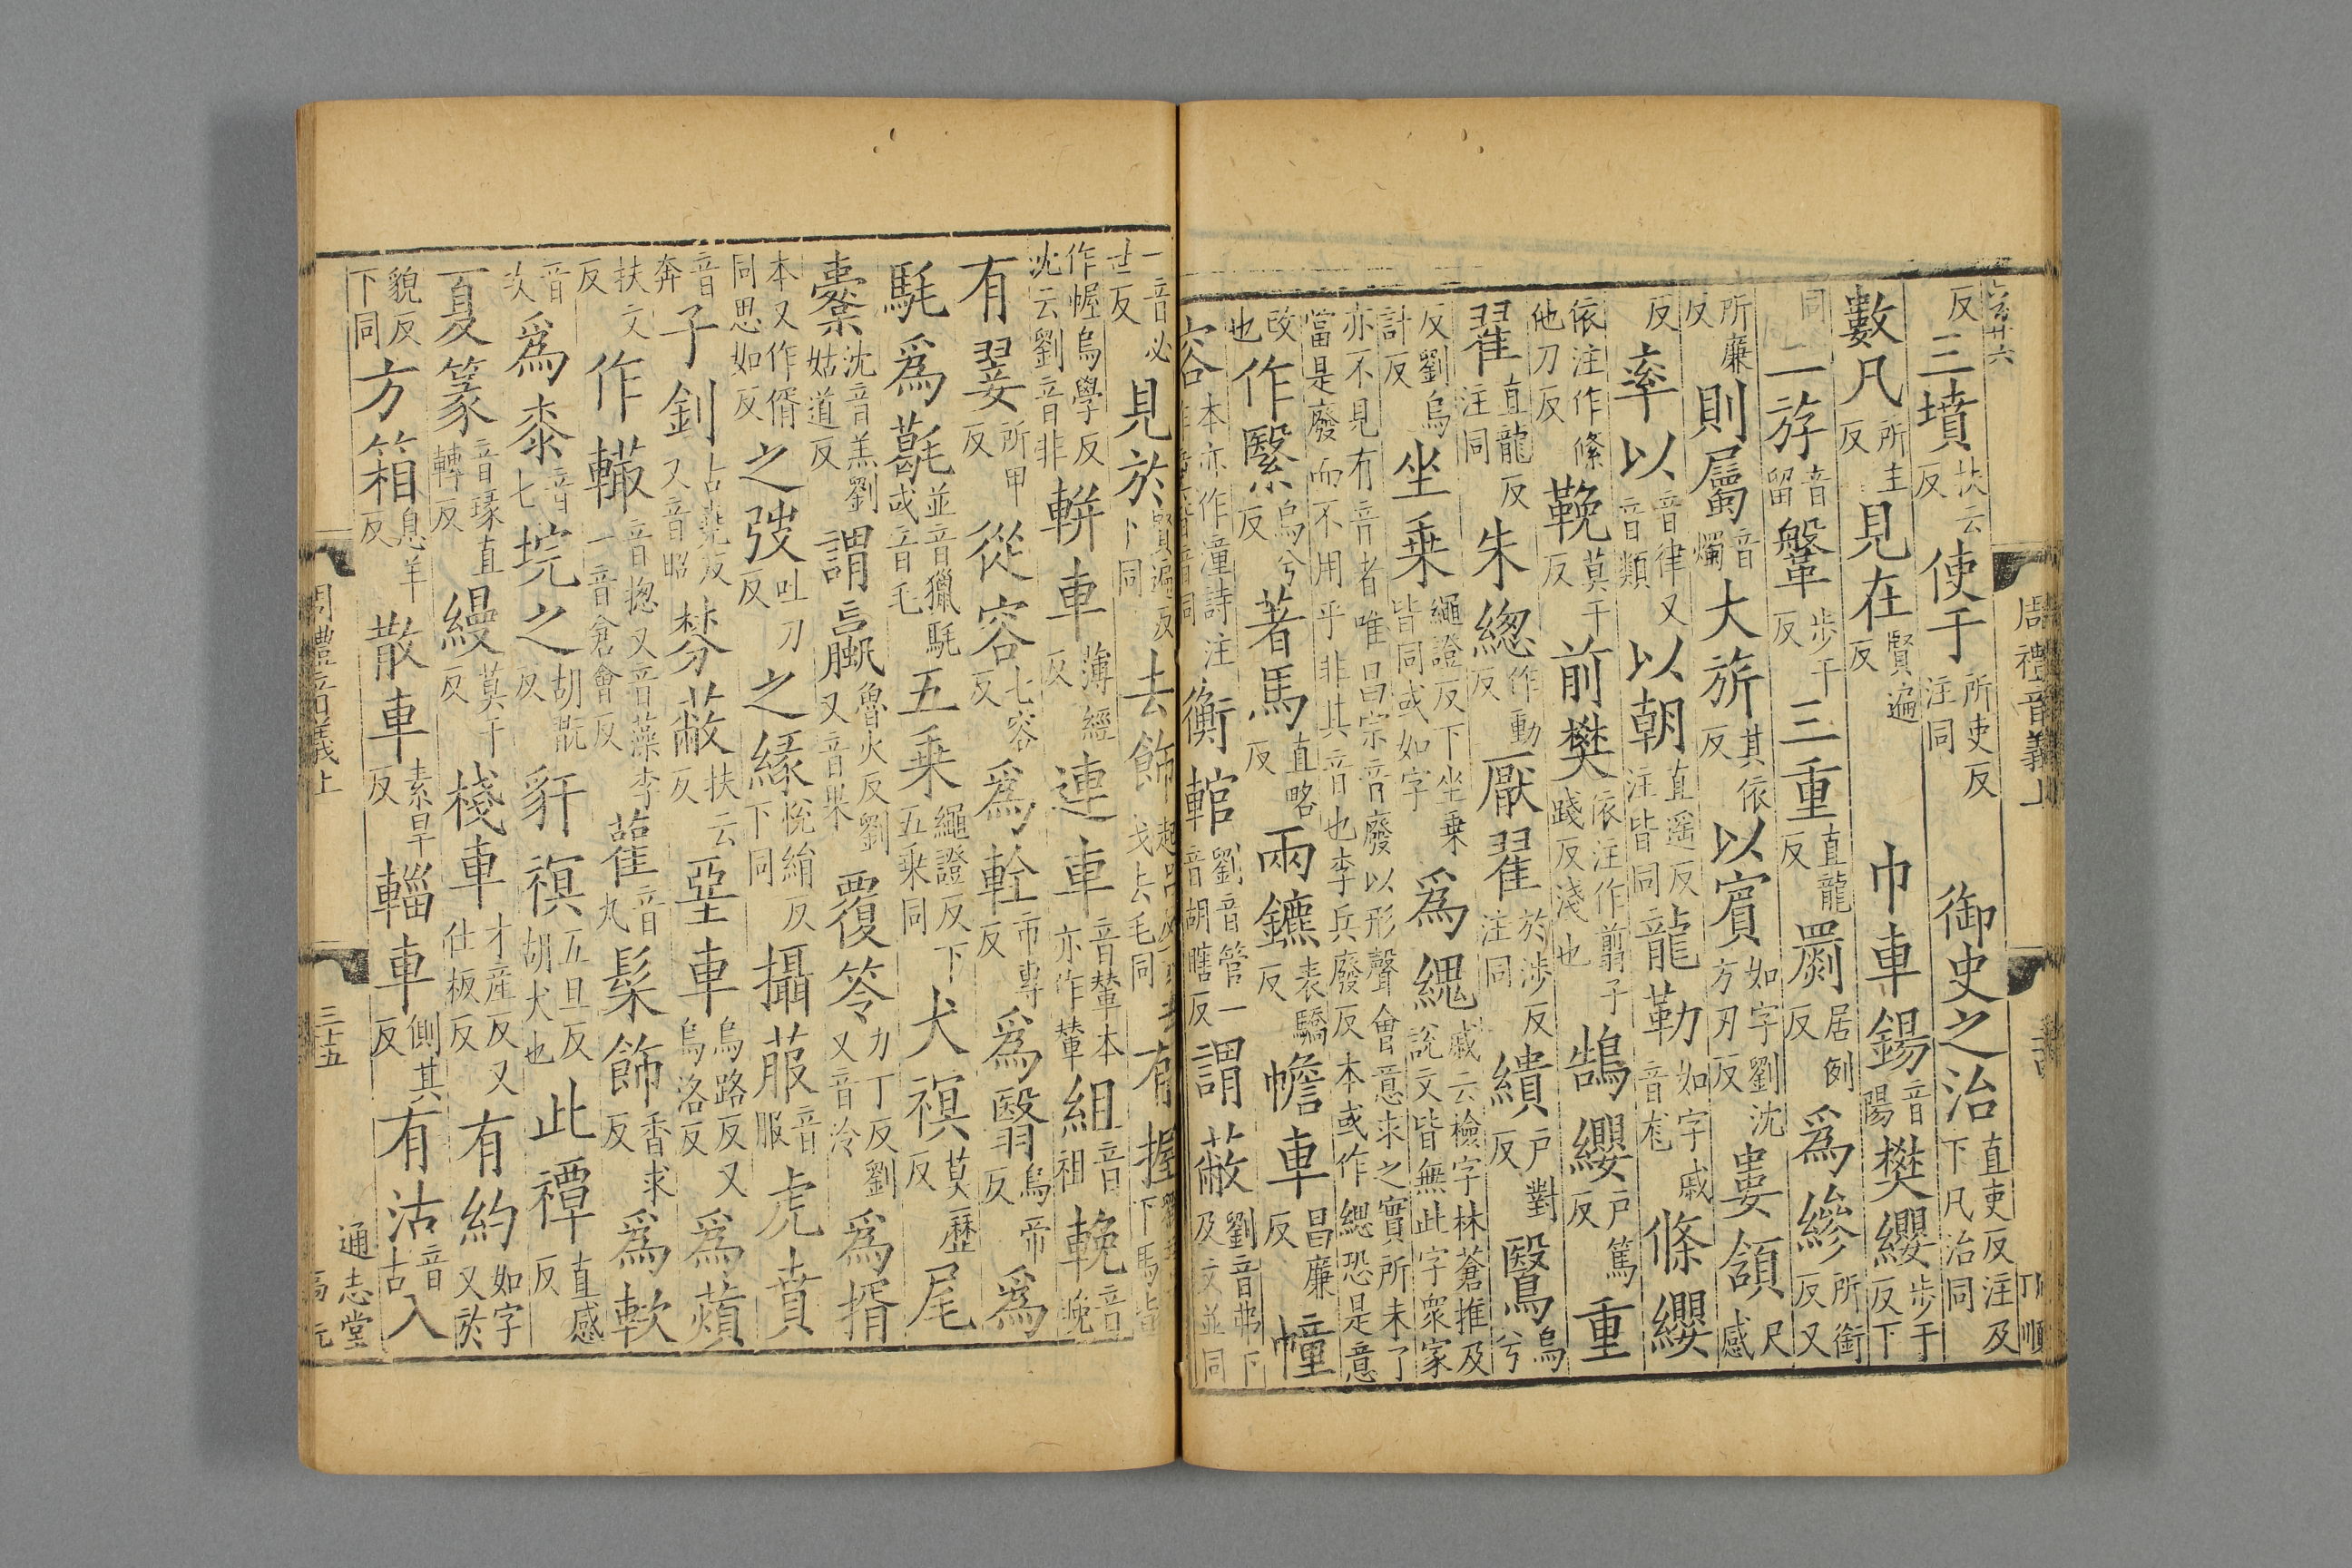 周禮音義上
反三墳扶云反使于所吏反注同御史之治直吏反注及下凡治同
數凡所主反見在賢遍反巾車鍚音陽樊纓步干反下
同二斿音留鞶步干反三重直龍反罽居例反為縿所銜反又
所廉反則屬音燭大旂其依反以賓如字劉沈方刃反婁頷尺感
反率以音律又音類以朝直遥反注皆同龍勒如字戚音尨條纓
依注作絛他刀反鞔莫干反前樊依注作翦子踐反淺也鵠纓戶篤反重
翟直龍反注同朱緫作動反厭翟於涉反注同繢戶對反鷖烏兮
反劉烏計反坐乘繩證反下坐乘皆同或如字為緦戚云檢字林蒼推及說文皆無此字眾家
亦不見有音者唯昌宗音廢以形聲會意求之實所未了當是廢而不用乎非其音也李兵廢反本或作緦恐是意
改也作繄烏兮反著馬直略反兩鑣表驕反幨車昌廉反幢
容本亦作潼詩注衡輨劉音管一音胡瞎反謂蔽劉音弗下及文並同
一音必世反見於賢遍反下同去飾有握下馬皆
作幄烏學反沈云劉音非輧車薄經反連車音輦本亦作輦組音祖輓音晚
有翣所甲反從容七容反為輇市專反為翳烏帝反為
駹為㲯並音獵駹或音毛五乘繩證反下五乘同犬𧙕莫歷反尾
櫜沈音羔劉姑道反謂蠃魯火反劉又音果覆笭力丁反劉又音泠為揟
本又作偦同思如反之弢吐刀反之緣悅絹反下同攝菔音服虎賁
音奔子釗占堯反又音昭棼蔽扶云反堊車烏路反又烏洛反為薠
扶文反作𨎹音揔又音藻李一音倉會反雚音丸髹飾香求反為軟
音次為桼音七垸之胡翫反豻𧙕五旦反胡犬也此禫直感反
夏篆音瑑直轉反縵莫干反棧車才產反又仕板反有約如字又於
貌反下同方箱息羊反散車素旱反輜車側其反有沽音古入
周禮音義上
三十五
通志堂